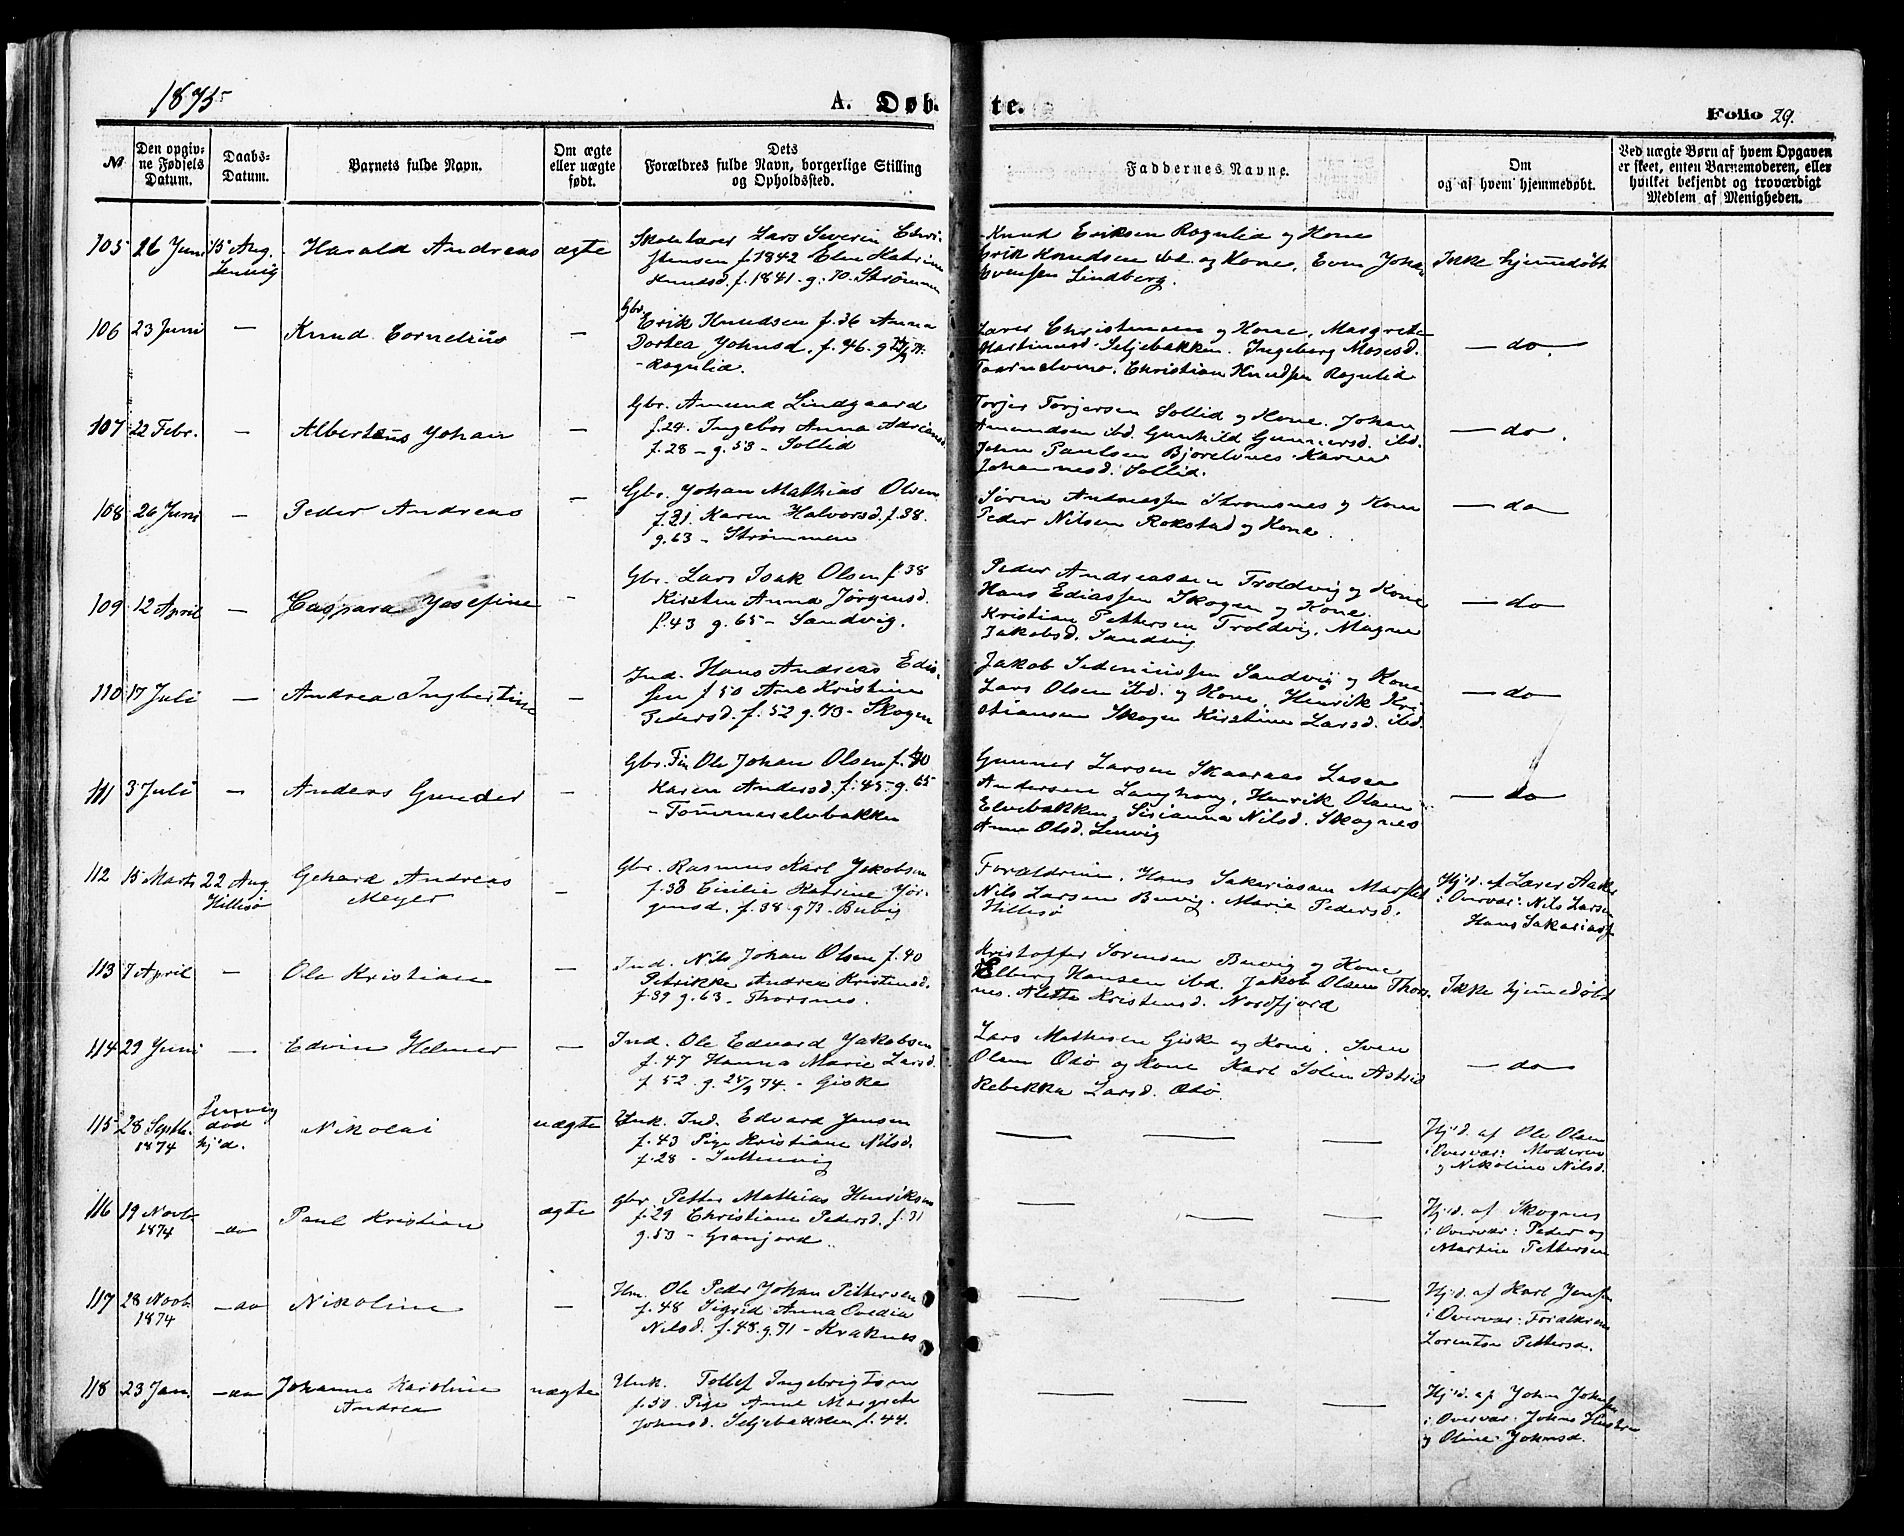 1875
A. Døb.
te.
Folio 29.
№
Den opgiv-
ne Fødsels
Datum.
Daabs-
Datum.
Barnets fulde Navn.
Om ægte
eller uægte
født.
Dets
Forældres fulde Navn, borgerlige Stilling
og Opholdssted.
Faddernes Navne.
Om
og af hvem hjemmedøbt.
Ved uægte Børn af hvem Opgaven
er skeet, enten Barnemoderen, eller
hvilket bekjendt og troværdigt
Medlem af Menigheden.
105 26 Juni 15 Aug. Harald Andreas ægte
Lenvig
Skolelærer Lars Severin Chri-
stensen f. 1842 Elen Katrine
Knudsd. f. 1841 - g. 70. Strømmen
Knud Eriksen Rognlid og Kone
Erik Knudsen ibd. og Kone, Even Johan
Evensen Lindberg.
Ikke hjemmedøbt
106 23 Juni — Knud Cornelius —
Gbr.
Erik Knudsen f. 36 Anna
Dortea Johnsd. f. 46. g.
- Rognlid.
Lærer Christensen og Kone, Margrete
Martinusd. Seljebakken. Ingeberg Mosesd.
Taarnelvmo, Christian Knudsen Rognlid
— do.
107 22 Febr. — Albertus Johan —
Gbr. Amund Lindgaard
f. 24. Ingebor Anna Adriansd.
f. 28 - g. 53 - Sollid
Torjer Torjersen Sollid og Kone. Johan
Amundsen ibd. Gunhild Gunnersd. ibd.
John Paulsen Bjorelvnes Karen
Johannesd. Sollid.
— do.
108 26 Juni — Peder Andreas —
Gbr. Johan Mathias Olsen
f. 31. Karen Halvorsd. f. 38.
g. 63 - Strømmen
Søren Andreassen Strømsnes og Kone
Peder Nilsen Rokstad og Kone.
— do
109 12 April — Caspara Josefine —
Gbr. Lars Isak Olsen f. 38
Kirsten Anna Jørgensd.
f. 43 g. 65 - Sandvig.
Peder Andreassen Troldvig og Kone
Hans Ediassen Skogen og Kone.
Kristian Pettersen Troldvig, Magna
Jakobsd. Sandvig
— do
110 17 Juli — Andrea Ingbertine —
Ind. Hans Andreas Edis-
sen f 50 Ane Kristine
Pedersd. f. 52 g. 73 - Skogen
Jakob Sedeniussen Sandvig og Kone
Lars Olsen ibd. og Kone, Henrik Kri-
stiansen Skogen Kirstine Larsd. ibd.
— do
111 3 Juli — Anders Gunder —
Gbr. Fin Ole Johan Olsen f. 40
Karen Andersd. f. 45 - g. 65
- Tømmerelvbakken
Gunner Larsen Skaaraas Lasse
Andersen Langhaug, Henrik Olsen
Elvebakken, Sirianna Nilsd. Skognes
Anne Olsd. Lenvig
— do
112 15 Marts 22 Aug. Gehard Andreas —
Hillesø Meyer
Gbr. Rasmus Karl Jakobsen
f. 38 Cecilie Katrine Jør-
gensd. f. 38. g 73. Buvig
Forældrene. Hans Sakariassen
Nils Larsen Buvig. Marie Pedersd.
Hillesø
Hj'd. af Lærer
i Overvær: Nils Larsen
Hans Sakariass.
113 7 April — Ole Kristian —
Ind. Nils Johan Olsen f. 40
Petrikke Andrea Kristensd.
f. 39 g. 63. - Thorsnes.
Kristoffer Sørensen Buvig og Kone
Elberg Hansen ibd. Jakob Olsen Thors-
nes. Aletta Kristensd. Nordfjord
Ikke hjemmedøbt
114 29 Juni — Edvin Helmer —
Ind. Ole Edvard Jakobsen
f. 47 Hanna Marie Larsd.
f 52. g. 24/9 74. - Giske
Lars Mathesen Giske og Kone. Sven
Olsen Otø og Kone Karl Solem Astrid
Rebekka Larsd. Otø.
— do
115 28 Septb. Lenvig Nikolai uægte
1874 død
hj'd.
Unk. Ind. Edvard Jensen
f. 43 Pige Kristiane Nilsd.
f. 28 -
— — —
Hj'd. af Ole Olsen
i Overvær: Moderen
og Nikoline Nilsd.
116 19 Novb. — do Paul Kristian ægte
1874
Gbr. Petter Mathias Henriksen
f. 29 Christiane Pedersd. f. 31
g. 53 - Granjord.
— — —
Hj'd. af Skognes
i Overvær: Peder og
Martin Pettersen
117 28 Novb. — do Nikoline —
1874
Hm. Ole Peder Johan Pettersen
f. 48 Sigrid Anna Ovedia
Nilsd. f. 48. g. 71 - Kraknes
— — —
Hj'd. af Karl Jensen
i Overvær: Forældrene
Lorentse Pettersd.
118 23 Jan. — do Johanna Karoline uægte
Andrea
Unk. Tollef Ingebrigtsen
f. 50. Pige Anne Margrete
Johnsd. Seljebakken f. 44.
— — —
Hj'd. af John Johnsen
i Overvær: Johns Hustru
og Oline Johnsd.